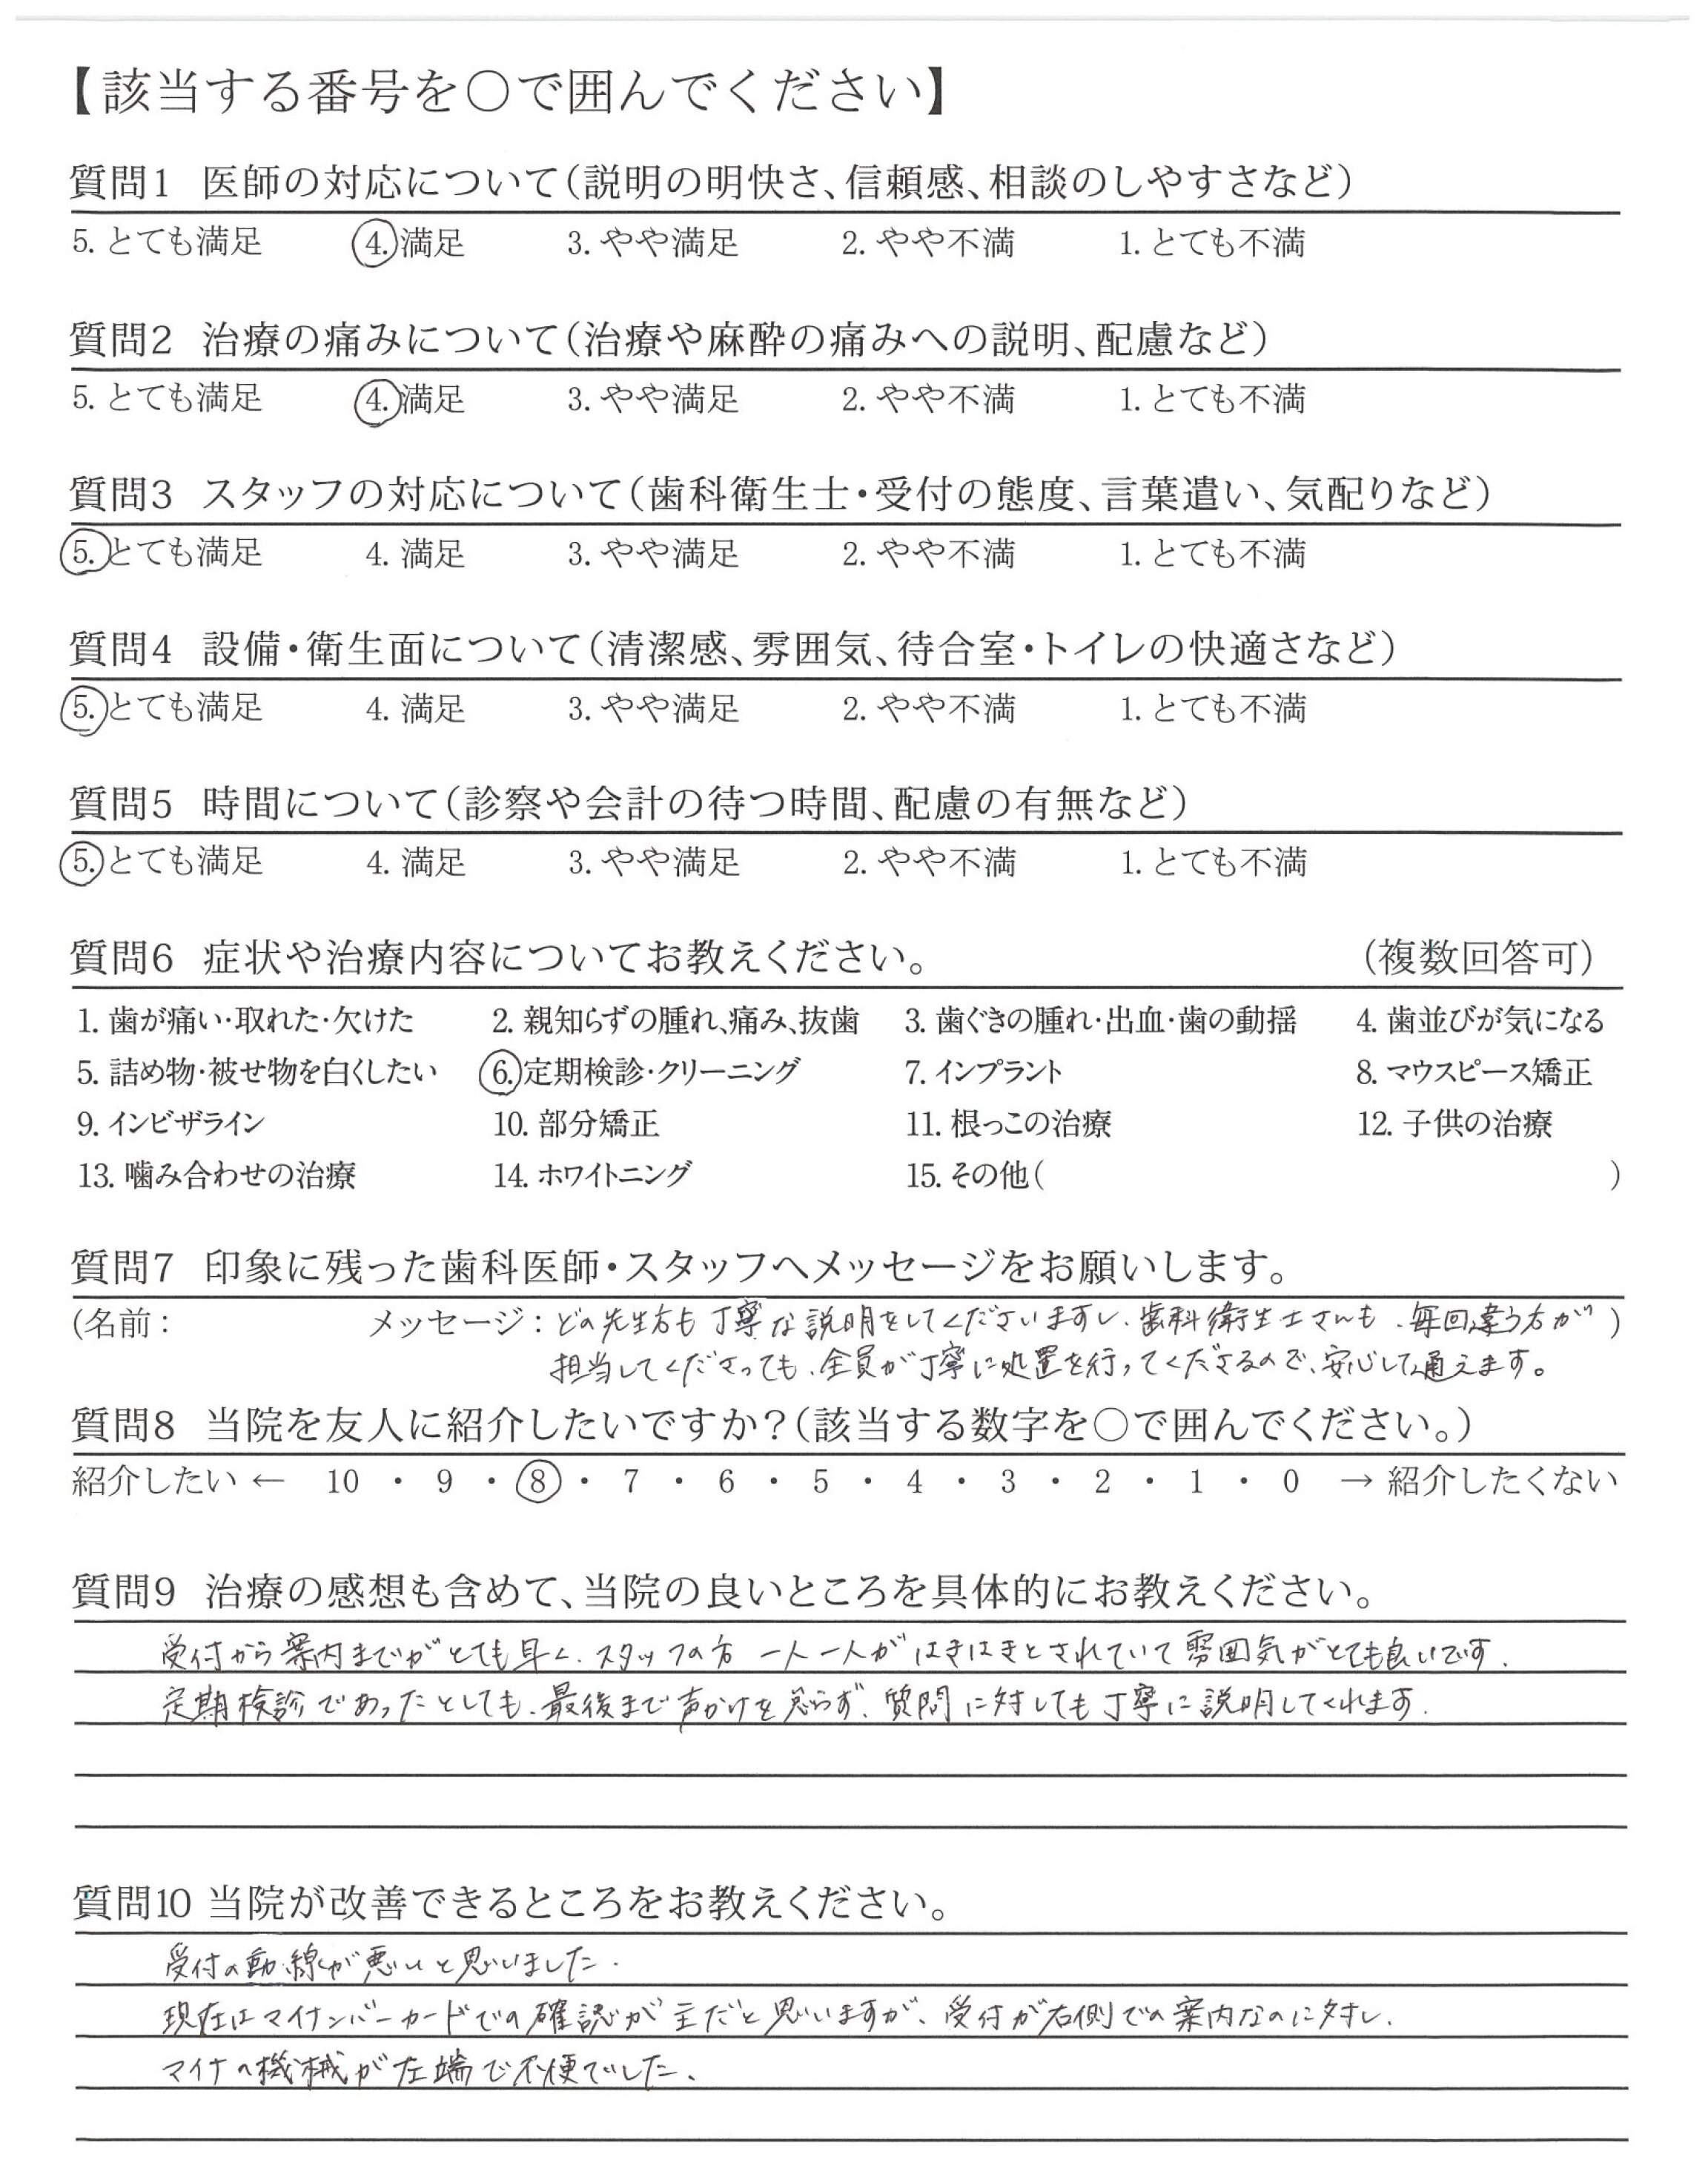 【該当する番号を○で囲んでください】
質問1 医師の対応について（説明の明快さ、信頼感、相談のしやすさなど）
5. とても満足 4. 満足 3. やや満足 2. やや不満 1. とても不満
質問2 治療の痛みについて（治療や麻酔の痛みへの説明、配慮など）
5. とても満足 4. 満足 3. やや満足 2. やや不満 1. とても不満
質問3 スタッフの対応について（歯科衛生士・受付の態度、言葉遣い、気配りなど）
5. とても満足 4. 満足 3. やや満足 2. やや不満 1. とても不満
質問4 設備・衛生面について（清潔感、雰囲気、待合室・トイレの快適さなど）
5. とても満足 4. 満足 3. やや満足 2. やや不満 1. とても不満
質問5 時間について（診察や会計の待つ時間、配慮の有無など）
5. とても満足 4. 満足 3. やや満足 2. やや不満 1. とても不満
質問6 症状や治療内容についてお教えください。 （複数回答可）
1. 歯が痛い・取れた・欠けた 2. 親知らずの腫れ、痛み、抜歯 3. 歯ぐきの腫れ・出血・歯の動揺 4. 歯並びが気になる
5. 詰め物・被せ物を白くしたい 6. 定期検診・クリーニング 7. インプラント 8. マウスピース矯正
9. インビザライン 10. 部分矯正 11. 根っこの治療 12. 子供の治療
13. 噛み合わせの治療 14. ホワイトニング 15. その他（ ）
質問7 印象に残った歯科医師・スタッフへメッセージをお願いします。
（名前： メッセージ：どの先生方も丁寧な説明をしてくださいますし、歯科衛生士さんも、毎回違う方が）
担当してくださっても、全員が丁寧に処置を行ってくださるので、安心して通えます。
質問8 当院を友人に紹介したいですか？（該当する数字を○で囲んでください。）
紹介したい ← 10 ・ 9 ・ 8 ・ 7 ・ 6 ・ 5 ・ 4 ・ 3 ・ 2 ・ 1 ・ 0 → 紹介したくない
質問9 治療の感想も含めて、当院の良いところを具体的にお教えください。
受付から案内までがとても早く、スタッフの方 一人一人がはきはきとされていて雰囲気がとても良いです。
定期検診であったとしても、最後まで声かけを怠らず、質問に対しても丁寧に説明してくれます。
質問10 当院が改善できるところをお教えください。
受付の動線が悪いと思いました。
現在はマイナンバーカードでの確認が主だと思いますが、受付が右側での案内なのに対し、
マイナの機械が左端で不便でした。